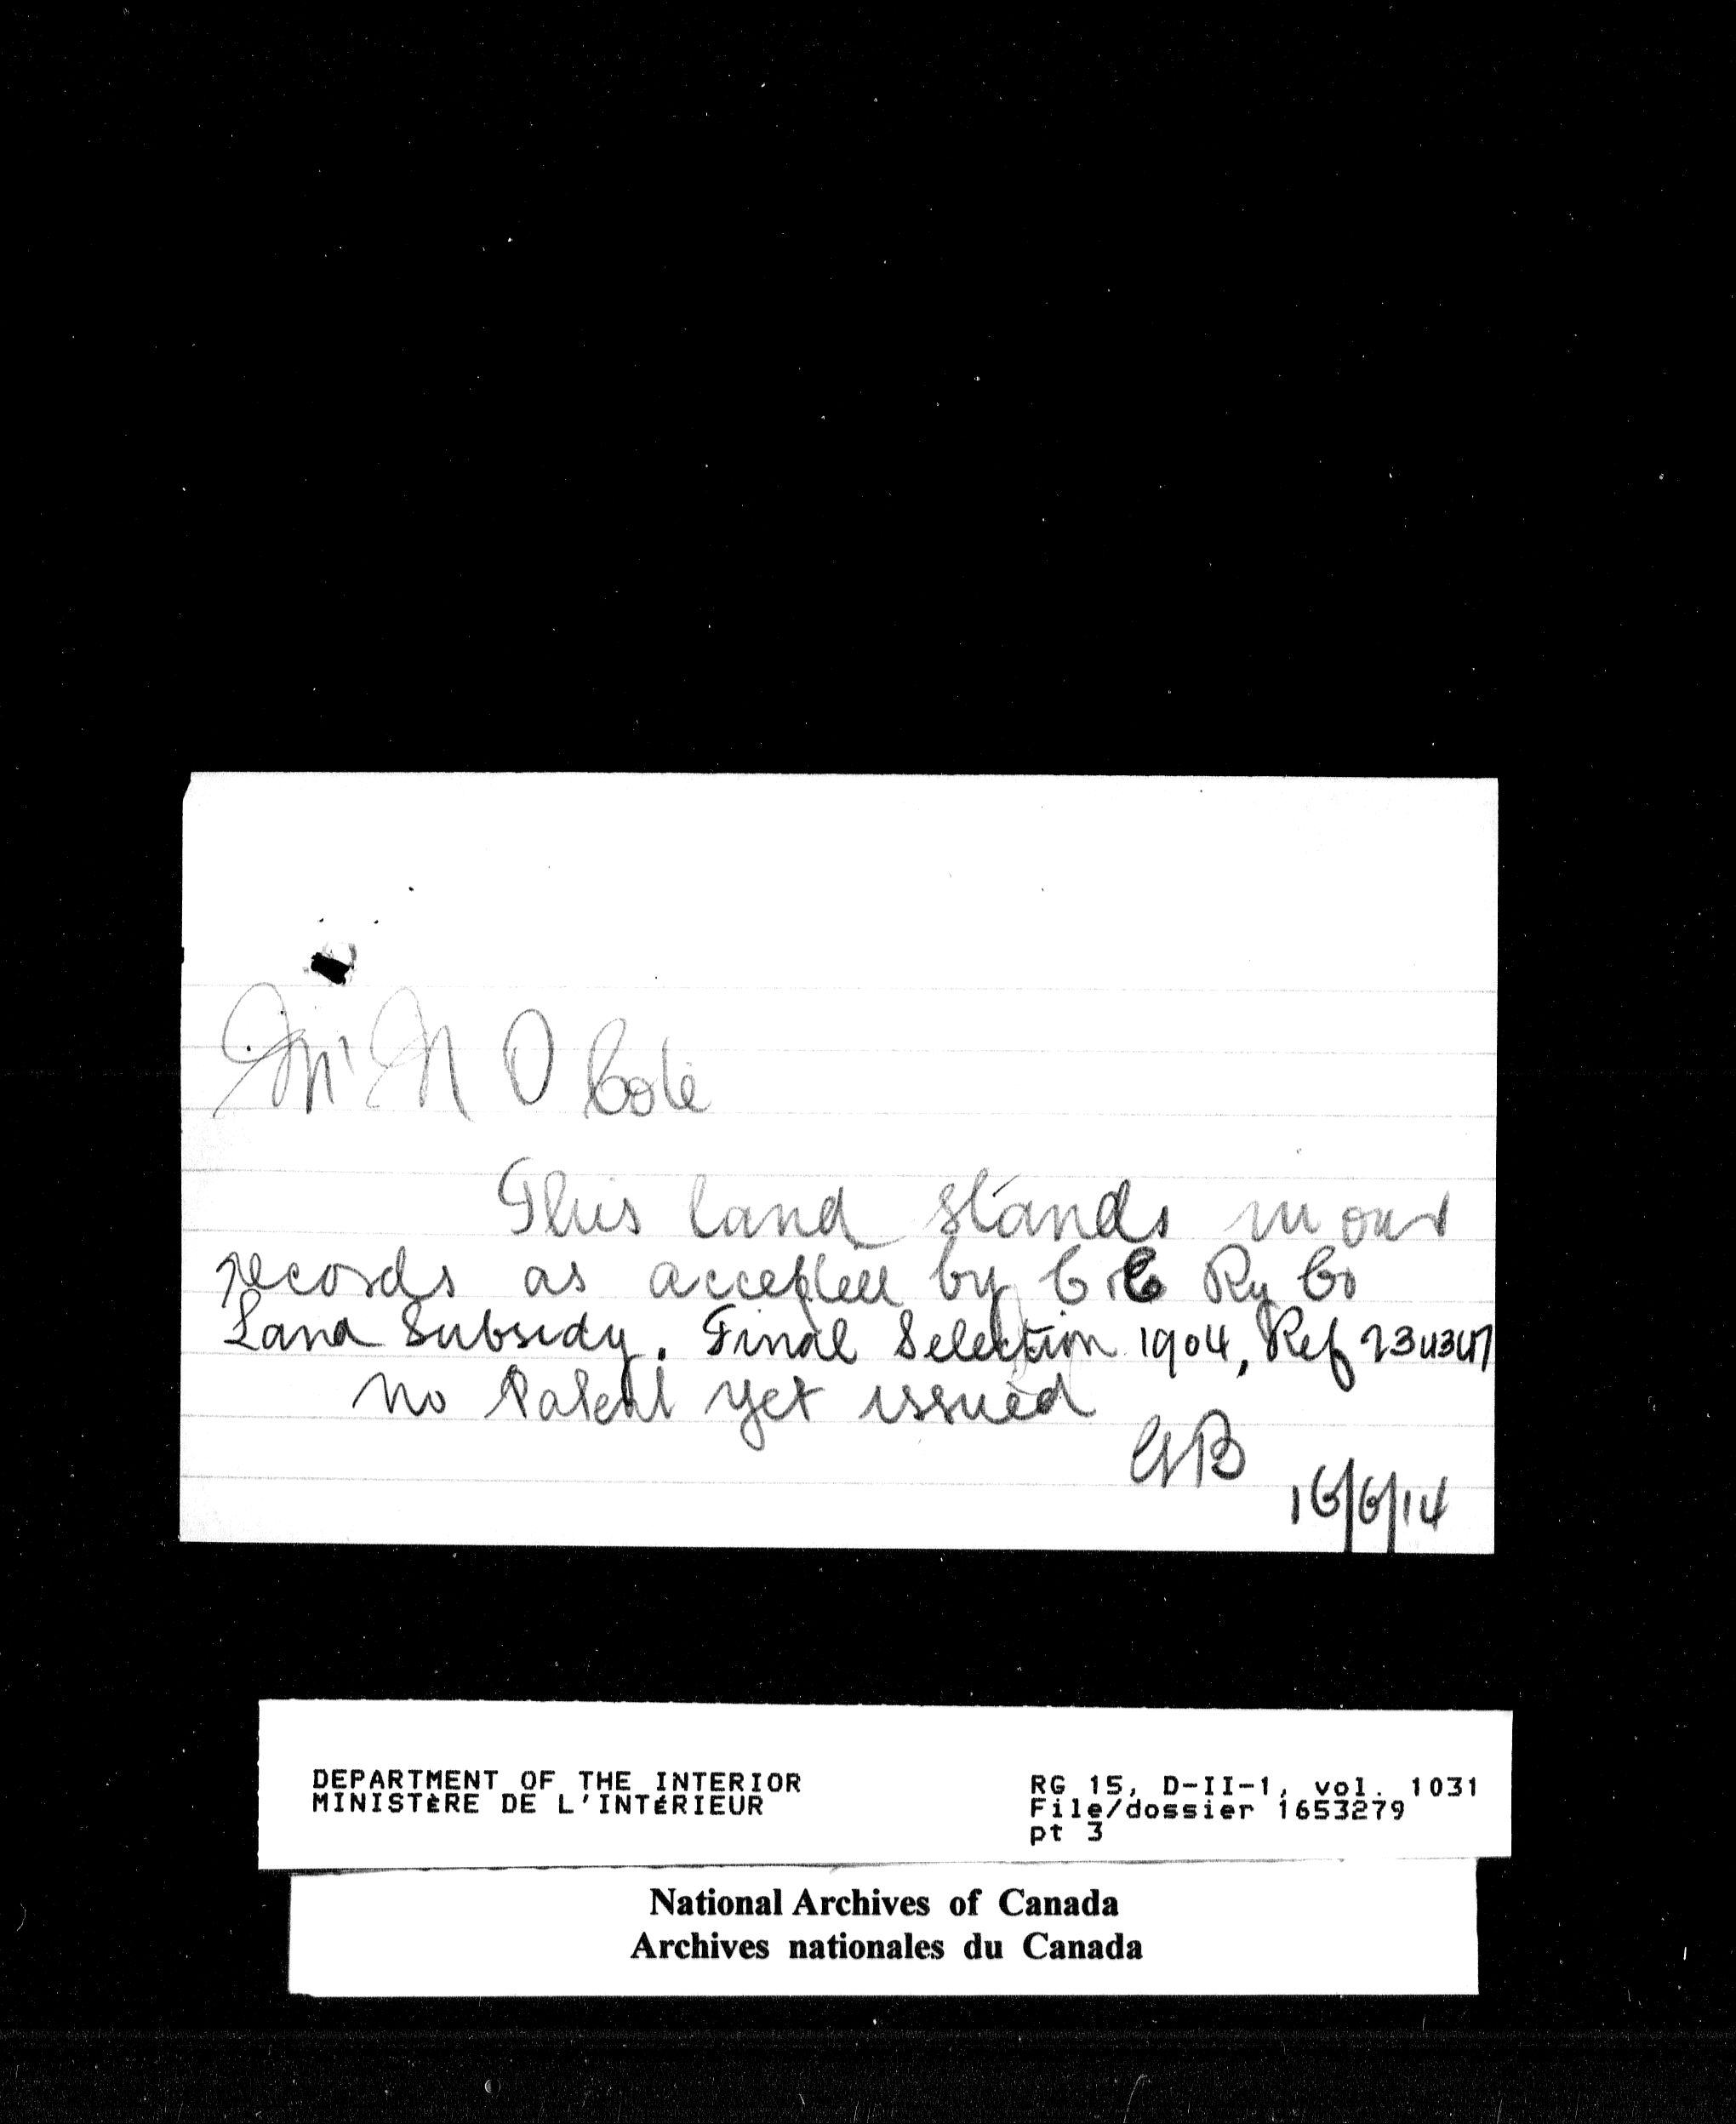 Mr N O Cote
This land stands in our
records as accepted by C & E Ry Co
Land Subsidy. Final Selection 1904, Ref 234347
No Patent yet issued
GB
16/6/14
DEPARTMENT OF THE INTERIOR
MINISTÈRE DE L'INTÉRIEUR
RG 15, D-II-1, vol. 1031
File/dossier 1653279
pt 3
National Archives of Canada
Archives nationales du Canada